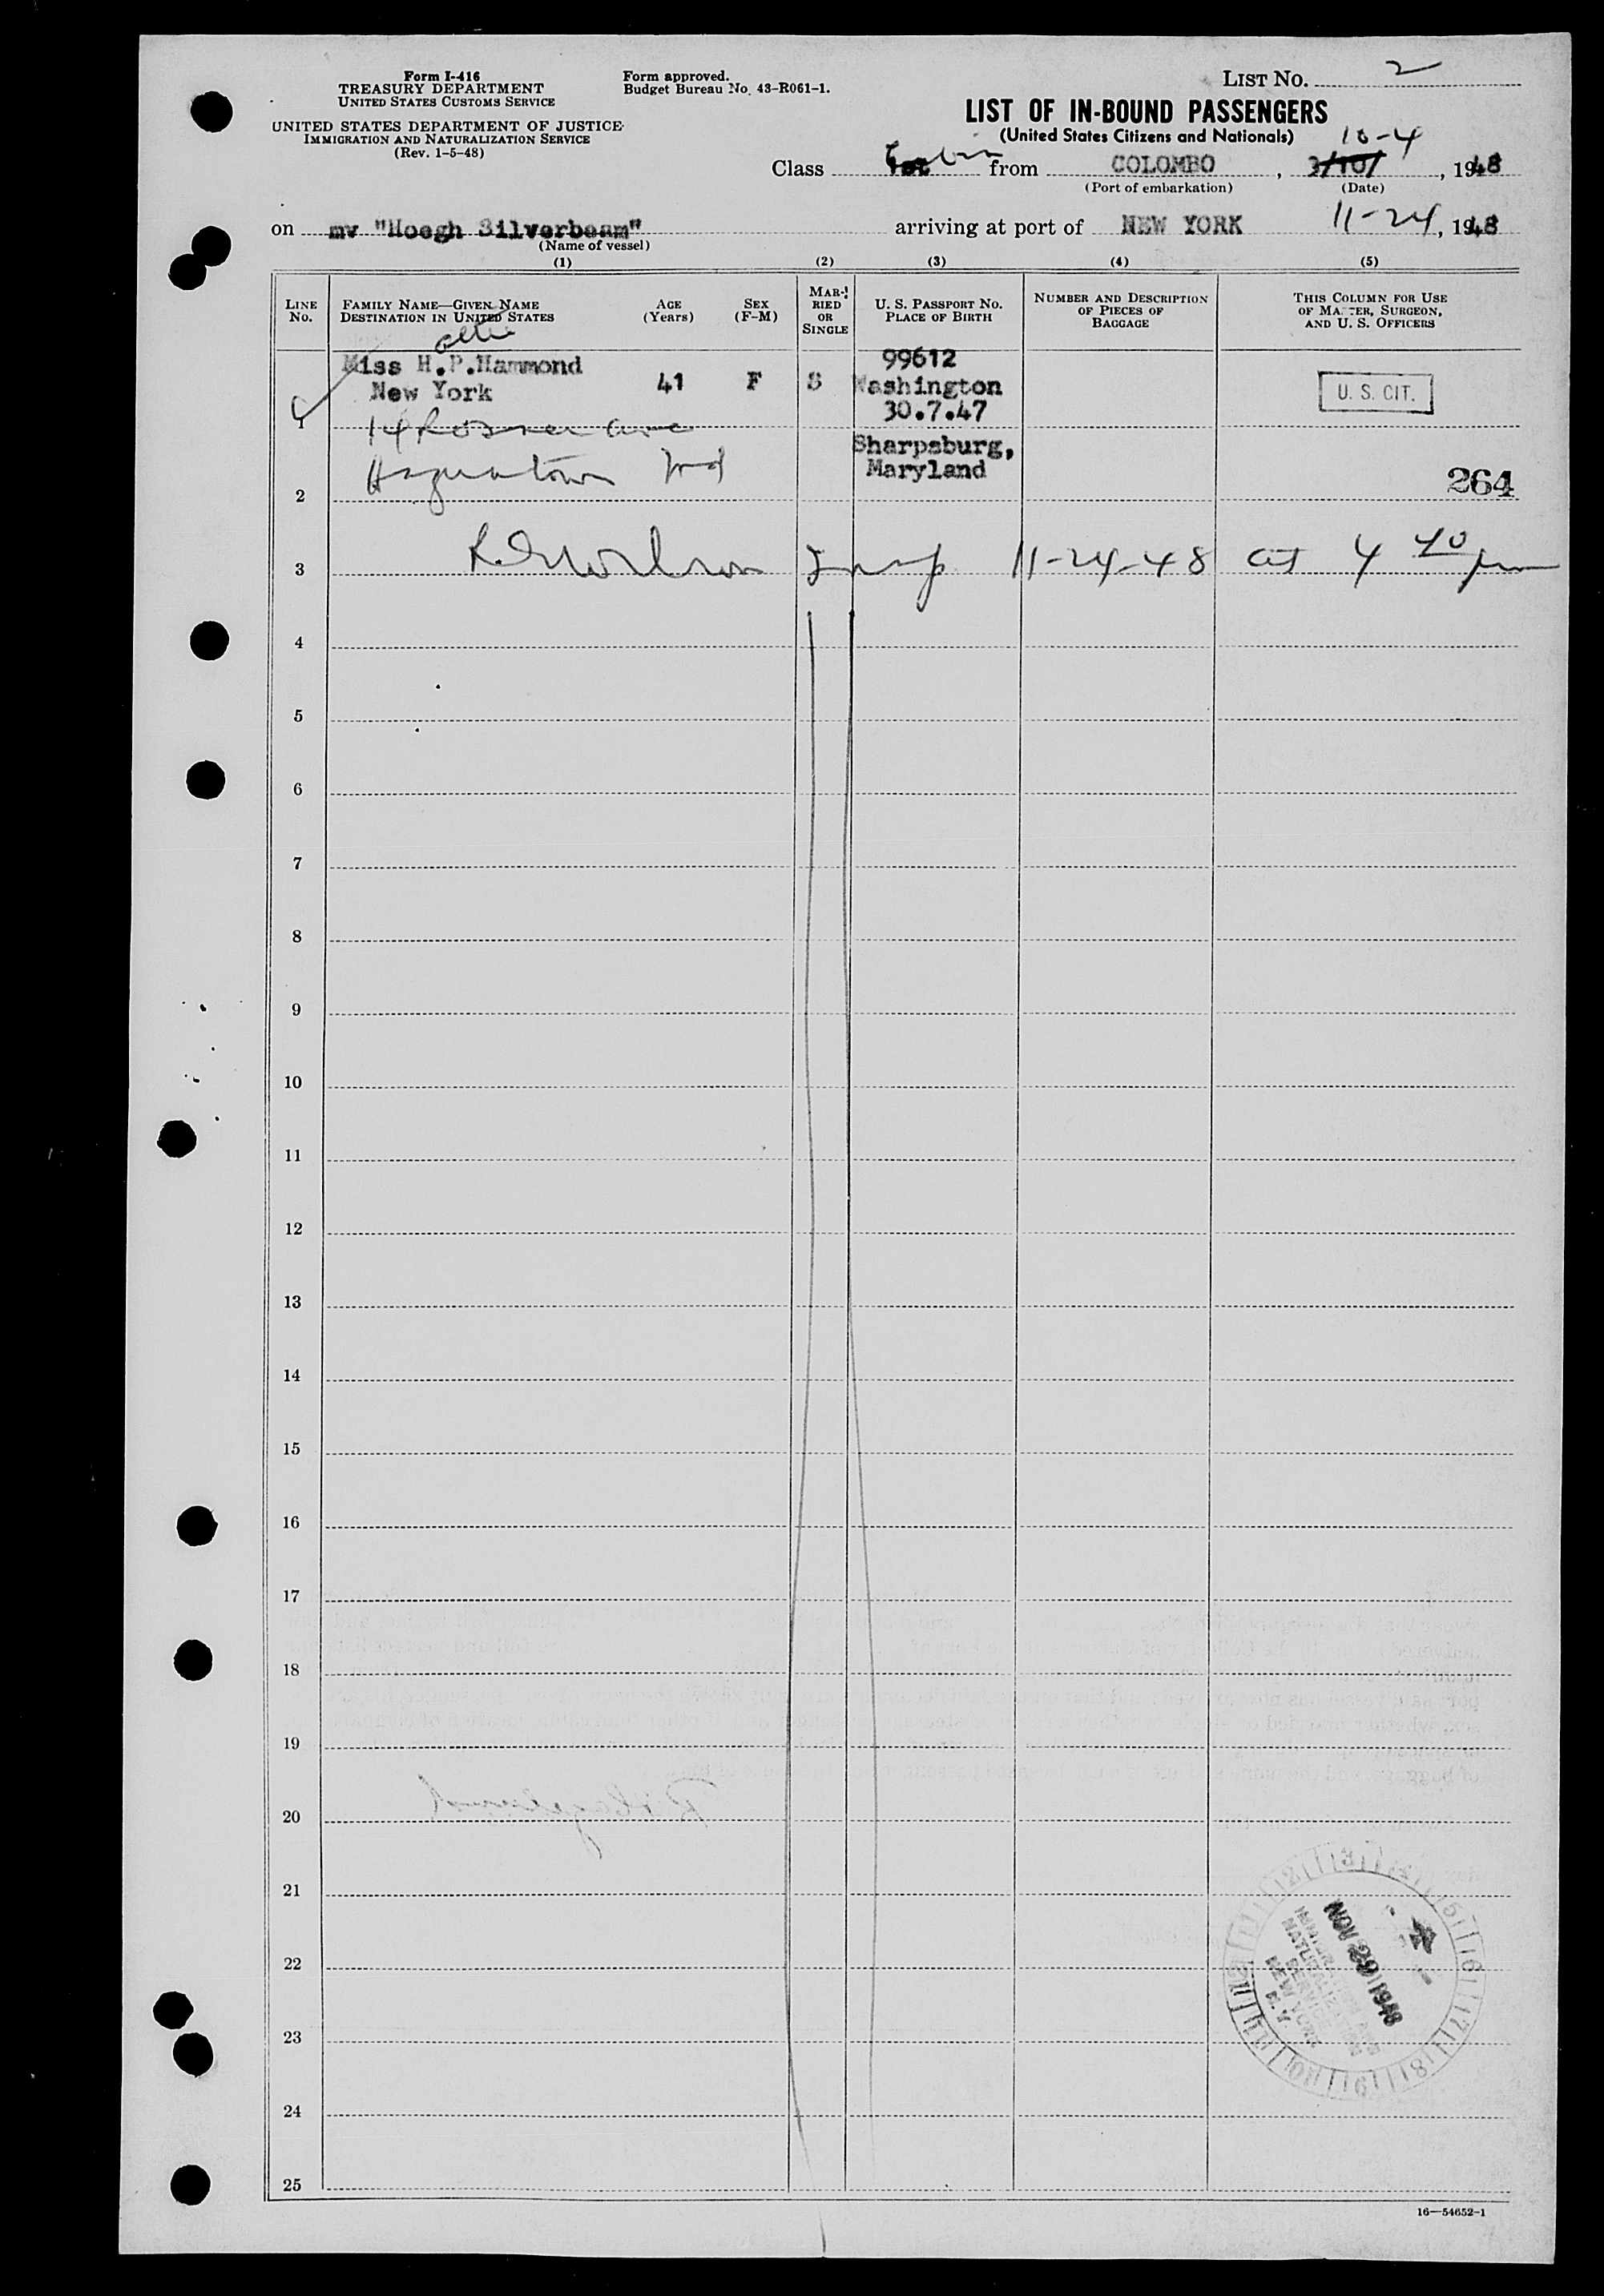 Form I-416
TREASURY DEPARTMENT
UNITED STATES CUSTOMS SERVICE
UNITED STATES DEPARTMENT OF JUSTICE
IMMIGRATION AND NATURALIZATION SERVICE
(Rev. 1-5-48)
Form approved.
Budget Bureau No. 43-R061-1.
LIST NO. 2
LIST OF IN-BOUND PASSENGERS
(United States Citizens and Nationals)
10-4
Class from COLOMBO, 3/10/, 1948
(Port of embarkation) (Date)
on mv "Hoegh Silverbeam" arriving at port of NEW YORK 11-24, 1948
(Name of vessel)
(1) (2) (3) (4) (5)
LINE NO.
FAMILY NAME—GIVEN NAME
DESTINATION IN UNITED STATES
AGE (Years)
SEX (F-M)
MARRIED OR SINGLE
U. S. PASSPORT NO.
PLACE OF BIRTH
NUMBER AND DESCRIPTION OF PIECES OF BAGGAGE
THIS COLUMN FOR USE OF MASTER, SURGEON, AND U. S. OFFICERS
Miss H.P.Hammond
New York
41 F S
99612
Washington
30.7.47
Sharpsburg,
Maryland
U. S. CIT.
1 14 Ave
2 Hagerstown Md
264
3 Insp 11-24-48 at 4 40 pm
4
5
6
7
8
9
10
11
12
13
14
15
16
17
18
19
20
21
22
23
24
25
NOV 29 1948
IMMIGRATION AND
NATURALIZATION
SERVICE
NEW YORK
N. Y.
16—54652-1